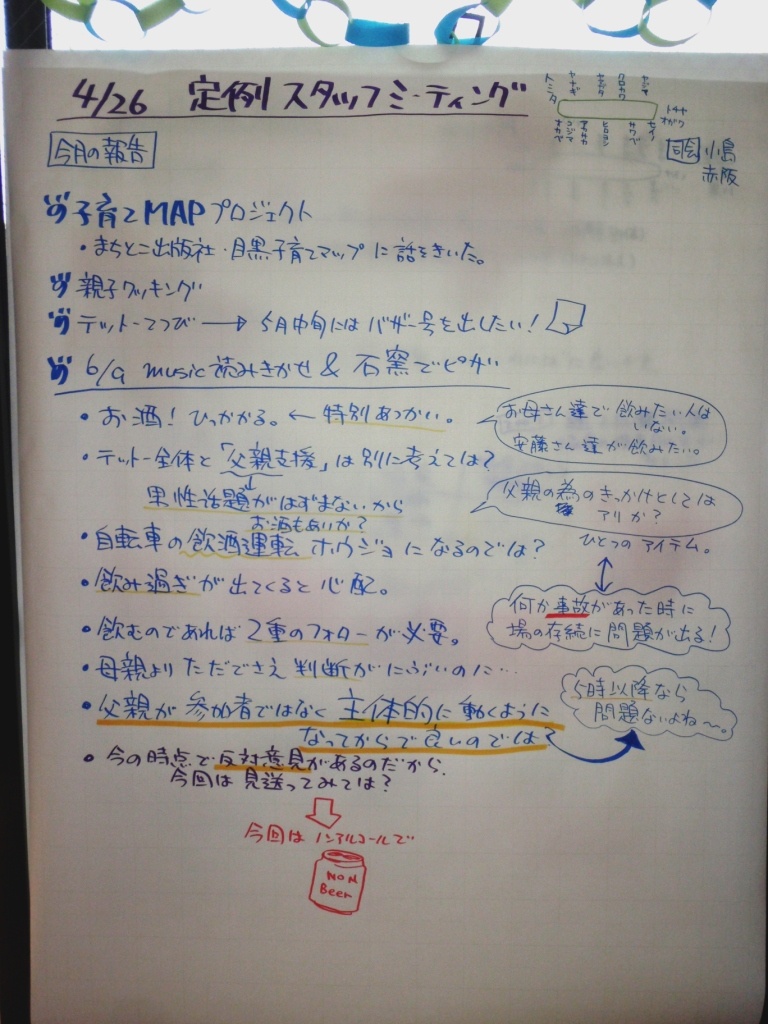 4/26 定例スタッフミーティング
トミタ ヤナギ ヤマダ クロカワ ヤジマ
オカベ コジマ アカサカ ヒロヨシ サワベ セイノ
オガワ
司会 小島
赤阪
今月の報告
子育てMAPプロジェクト
・まちとこ出版社・目黒子育てマップに話をきいた。
親子クッキング
テットーてつび → 5月中旬にはバザー号を出したい!
6/9 music 読みきかせ & 石窯でピザ
・お酒! ひっかかる。← 特別あつかい。
お母さん達で飲みたい人は
いない。
安藤さん達が飲みたい。
・テットー全体と「父親支援」は別に考えては?
↓
男性話題がはずまないから
お酒もありか?
父親の為のきっかけとしては
アリか?
ひとつのアイテム。
・自転車の飲酒運転ホウジョになるのでは?
・飲み過ぎが出てくると心配。
何か事故があった時に
場の存続に問題が出る!
・飲むのであれば2重のフォローが必要。
・母親よりただでさえ判断がにぶいのに…
・父親が参加者ではなく主体的に動くように
なってからで良いのでは?
5時以降なら
問題ないよね〜。
・今の時点で反対意見があるのだから、
今回は見送ってみては?
今回はノンアルコールで
NON
Beer